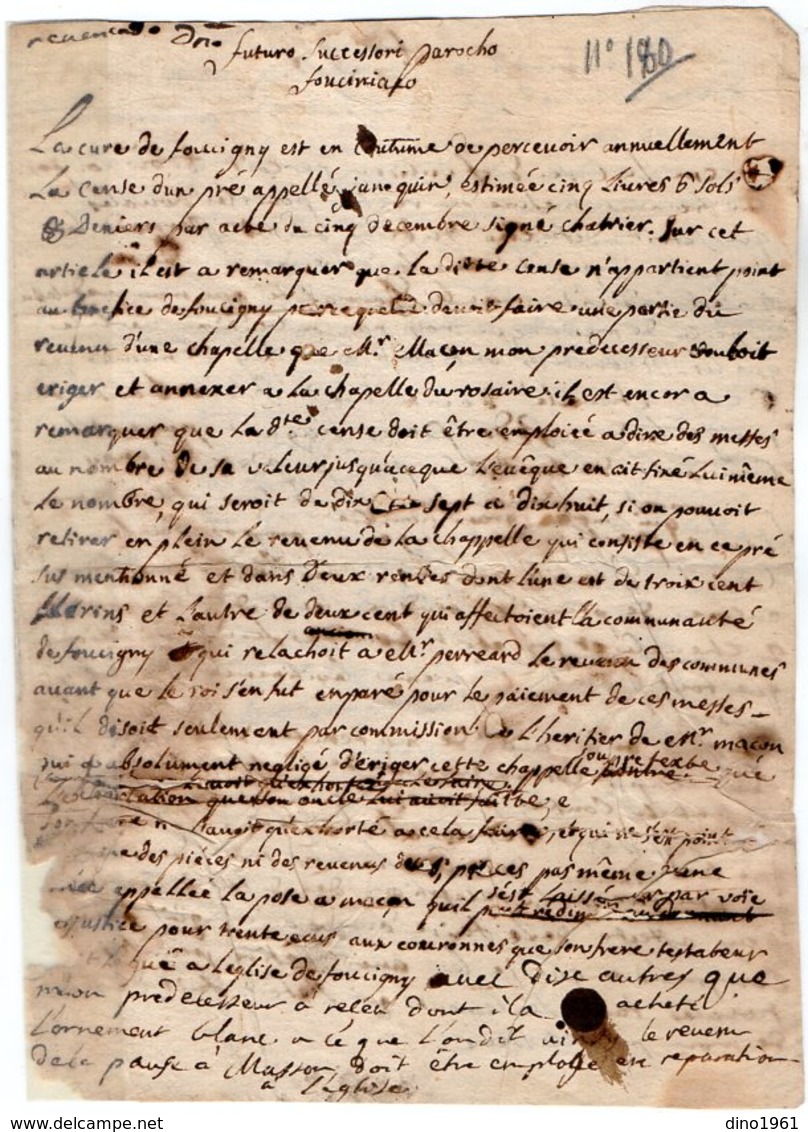 reverendo Dno futuro successori parocho
n° 180
foucirciaco
La cure de foucigny est en Coutume de percevoir annuellement
La cense dun pré appellé junequin, estimée cinq livres 6 sols
8 Deniers par acte du cinq decembre signé chatrier. sur cet
article il est a remarquer que la ditte cense n'appartient point
au benefice de foucigny parcequelle devoit faire une partie du
revenu d'une chapelle que Mr. Maçon mon predecesseur vouloit
eriger et annexer a la chapelle du rosaire. il est encor a
remarquer que la dte cense doit être emploiée a dire des messes
au nombre de sa valeur jusqu'aceque L'evêque en ait fixé Lui même
Le nombre, qui seroit de dix sept a dix huit, si on pouvoit
retirer en plein le revenu de la chappelle qui consiste en ce pré
sus mentionné et dans Deux rentes dont l'une est de troix cent
florins et l'autre de deux cent qui affectoient la communauté
de foucigny qui relachoit a Mr. perreard le revenu des communes
avant que le roi s'en fut enparé pour le paiement de ces messes
qu'il disoit seulement par commission. L'heritier de Mr. maçon
qui a absolument negligé d'ériger cette chappelle sous pretexte que
son oncle Lui avoit
n'avoit qu'exhorté a cela faire, et qui ne s'en point
des piéces ni des revenus pas même d'une
appellée la pose a maçon quil s'est laissé par voie
justice pour trente ecus aux couronnes que son frere testateur
a l'eglise de foucigny avec dixe autres que
mon predecesseur à relevé dont il a acheté
L'ornement blanc a ce que l'on dit le revenu
de la pause à Masson doit être employé en reparation
a l'eglise.
dino1961